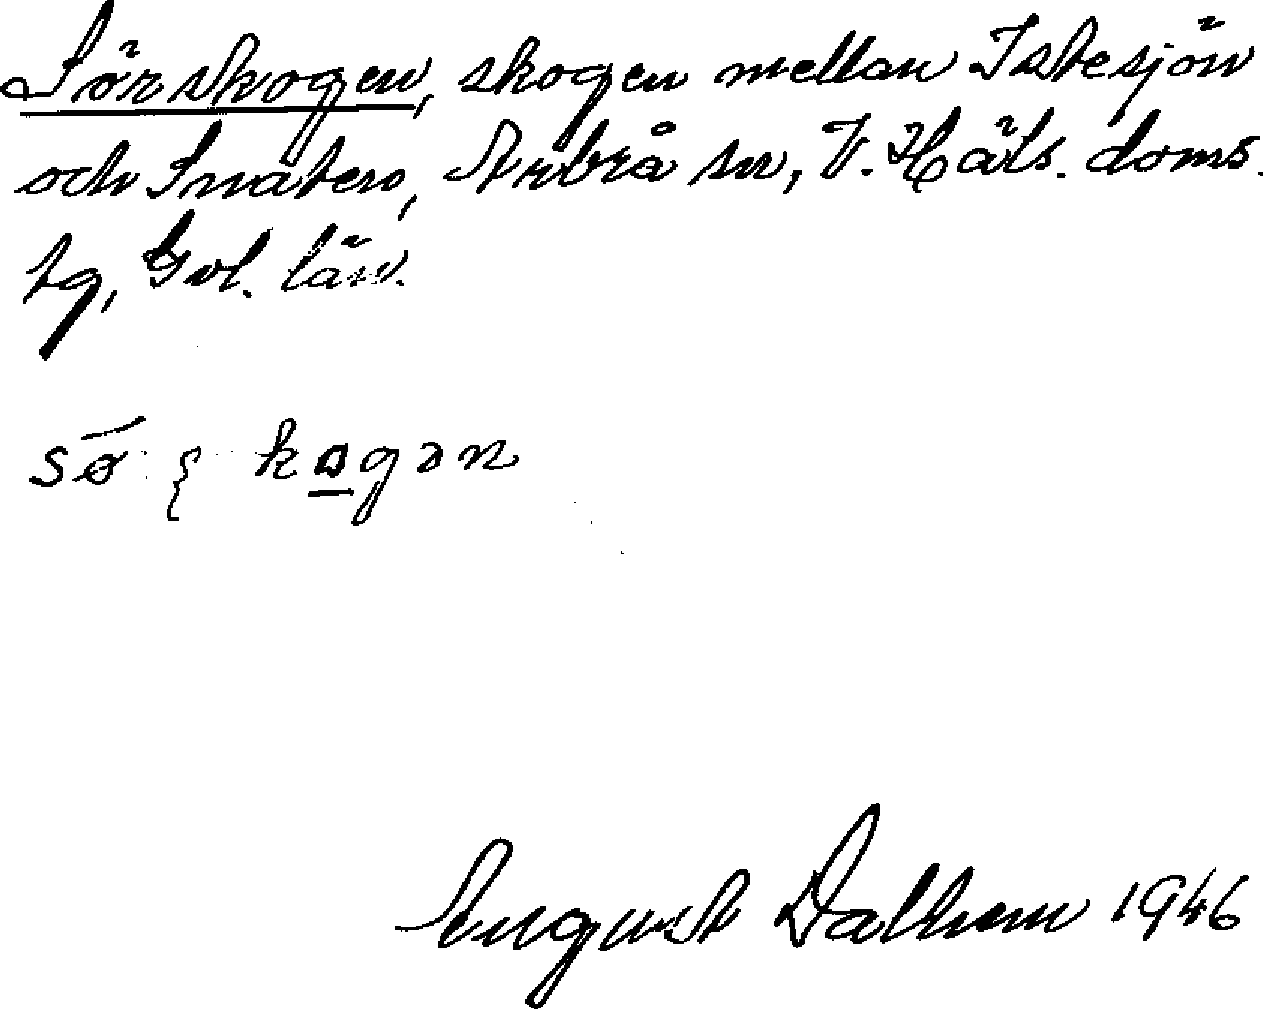 Sörskogen, skogen mellan Istesjön
och Snaten, Arbrå sn, V. Häls. doms.
tg, Gvl. län.
sō ʂ kogən
August Dalhem 1946